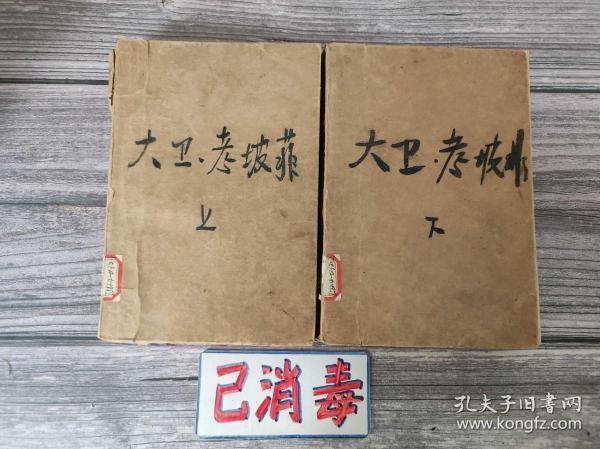 大卫·考坡菲
上
大卫·考坡菲
下
已消毒
孔夫子旧书网
www.kongfz.com